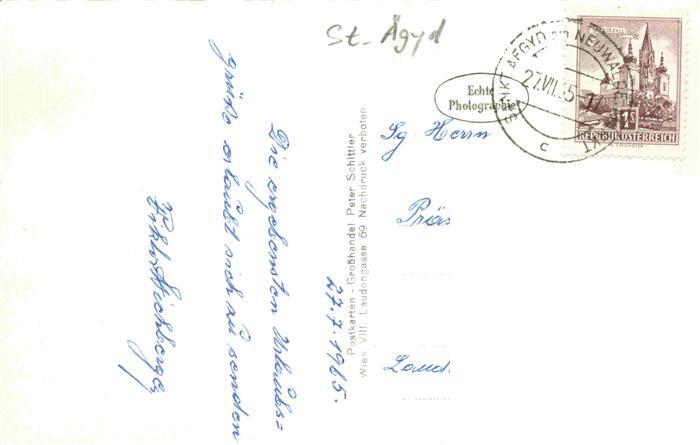 St. Ägyd
SANKT AEGYD AM NEUWALDE
27.VII.65-17
c
1S
REPUBLIK ÖSTERREICH
Echte
Photographie
Sg. Herrn
Präs
Postkarten - Großhandel Peter Schittler
Wien VIII. Laudongasse 69 Nachdruck verboten
27.7.1965.
Die ergebensten Urlaubs=
grüße erlaubt sich zu senden